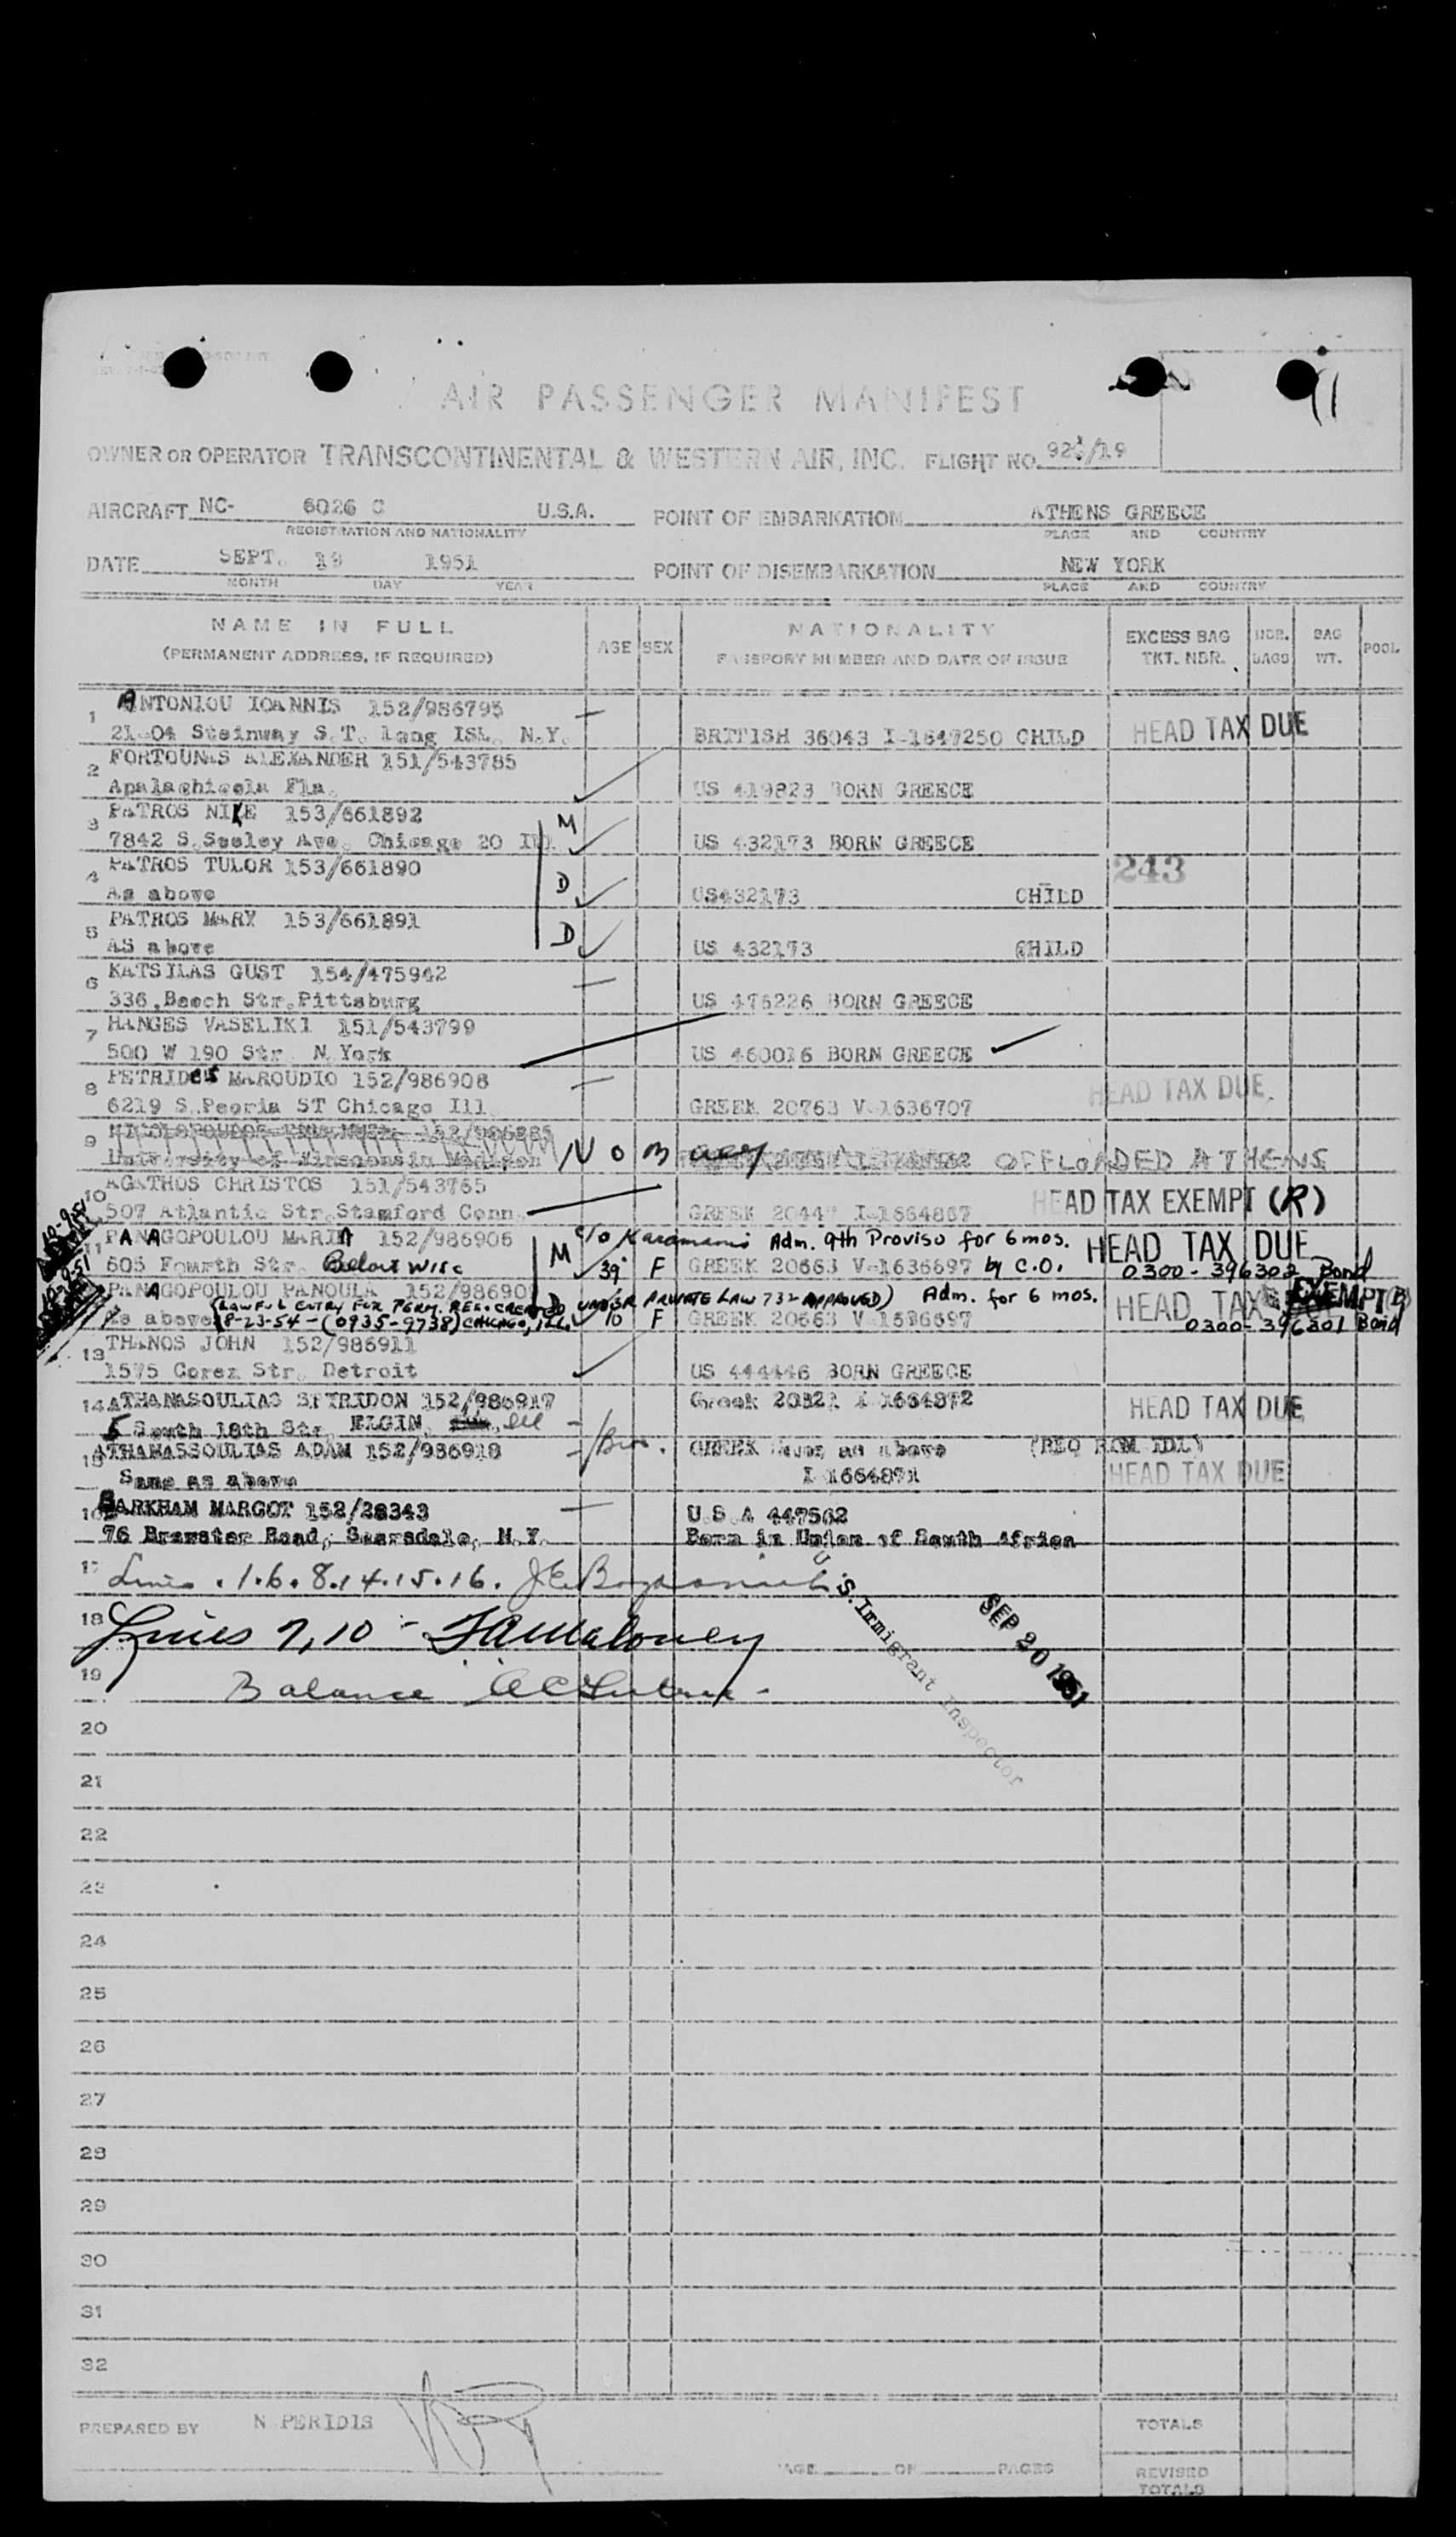 AIR PASSENGER MANIFEST
OWNER OR OPERATOR TRANSCONTINENTAL & WESTERN AIR, INC. FLIGHT NO. /19
AIRCRAFT NC- 6026 C U.S.A. POINT OF EMBARKATION ATHENS GREECE
REGISTRATION AND NATIONALITY PLACE AND COUNTRY
DATE SEPT. 19 1951 POINT OF DISEMBARKATION NEW YORK
MONTH DAY YEAR PLACE AND COUNTRY
NAME IN FULL
(PERMANENT ADDRESS, IF REQUIRED)
AGE SEX
NATIONALITY
PASSPORT NUMBER AND DATE OF ISSUE
EXCESS BAG TKT. NBR.
NBR. BAGS
BAG WT.
POOL
1 ANTONIOU IOANNIS 152/986795
21-04 Steinway S.T. Long ISL. N.Y. BRITISH 36043 I-1647250 CHILD HEAD TAX DUE
2 FORTOUNAS ALEXANDER 151/543785
Apalachicola Fla. US 419823 BORN GREECE
3 PATROS NIKE 153/661892 M
7842 S.Seeley Ave. Chicago 20 Ill US 432173 BORN GREECE
4 PATROS TULOR 153/661890 D 243
As above US432173 CHILD
5 PATROS MARY 153/661891 D
AS above US 432173 CHILD
6 KATSILAS GUST 154/475942
336,Beech Str.Pittsburg US 476226 BORN GREECE
7 HANGES VASELIKI 151/543799
500 W 190 Str. N.York US 460016 BORN GREECE
8 PETRIDES MAROUDIO 152/986908
6219 S.Peoria ST Chicago Ill. GREEK 20763 V-1636707 HEAD TAX DUE.
9 152/986885
University of Winsconsin Madison NO B OFFLOADED ATHENS
10 AGATHOS CHRISTOS 151/543765
507 Atlantic Str.Stamford Conn. GREEK 20447 I-1664867 HEAD TAX EXEMPT (R)
11 PANAGOPOULOU MARIA 152/986906 M c/o Karamanis Adm. 9th Proviso for 6 mos. HEAD TAX DUE
605 Fourth Str. Beloit Wisc 39 F GREEK 20663 V-1636697 by C.O. 0300-396302 Bond
PANAGOPOULOU PANOULA 152/98690 D (LAWFUL ENTRY FOR PERM. RES. CREATED UNDER PRIVATE LAW 732 APPROVED) Adm. for 6 mos. HEAD TAX EXEMPT (B)
As above 8-23-54-(0935-9738) CHICAGO, ILL. 10 F GREEK 20663 V 1636697 0300-396301 Bond
13 THANOS JOHN 152/986911
1575 Corez Str. Detroit US 444446 BORN GREECE
14 ATHANASOULIAS SPIRIDON 152/986917 Greek 20321 I 1664872 HEAD TAX DUE
5 South 18th Str. ELGIN, Ill
15 ATHANASSOULIAS ADAM 152/986918 Bro. GREEK as above
Same as above I 1664871 HEAD TAX DUE
16 BARKHAM MARGOT 152/28343 U.S.A 447562
76 Brewster Road, Scarsdale, N.Y. Born in Union of South Africa
17 Lines .1.6.8.14.15.16.
18 Lines 7,10 - Maloney
19 Balance
U.S. Immigrant Inspector
SEP 20 1951
20
21
22
23
24
25
26
27
28
29
30
31
32
PREPARED BY N PERIDIS
PAGE OF PAGES
TOTALS
REVISED TOTALS